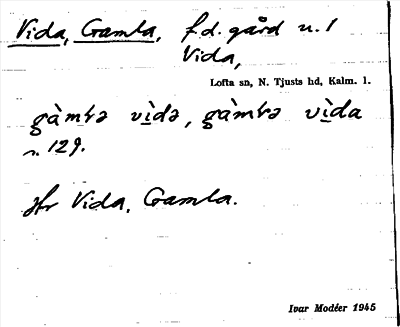 Vida, Gamla, f.d. gård n. 1
Vida,
Lofta sn, N. Tjusts hd, Kalm. l.
vìdə, vìda
129.
Jfr Vida, Gamla.
Ivar Modéer 1945